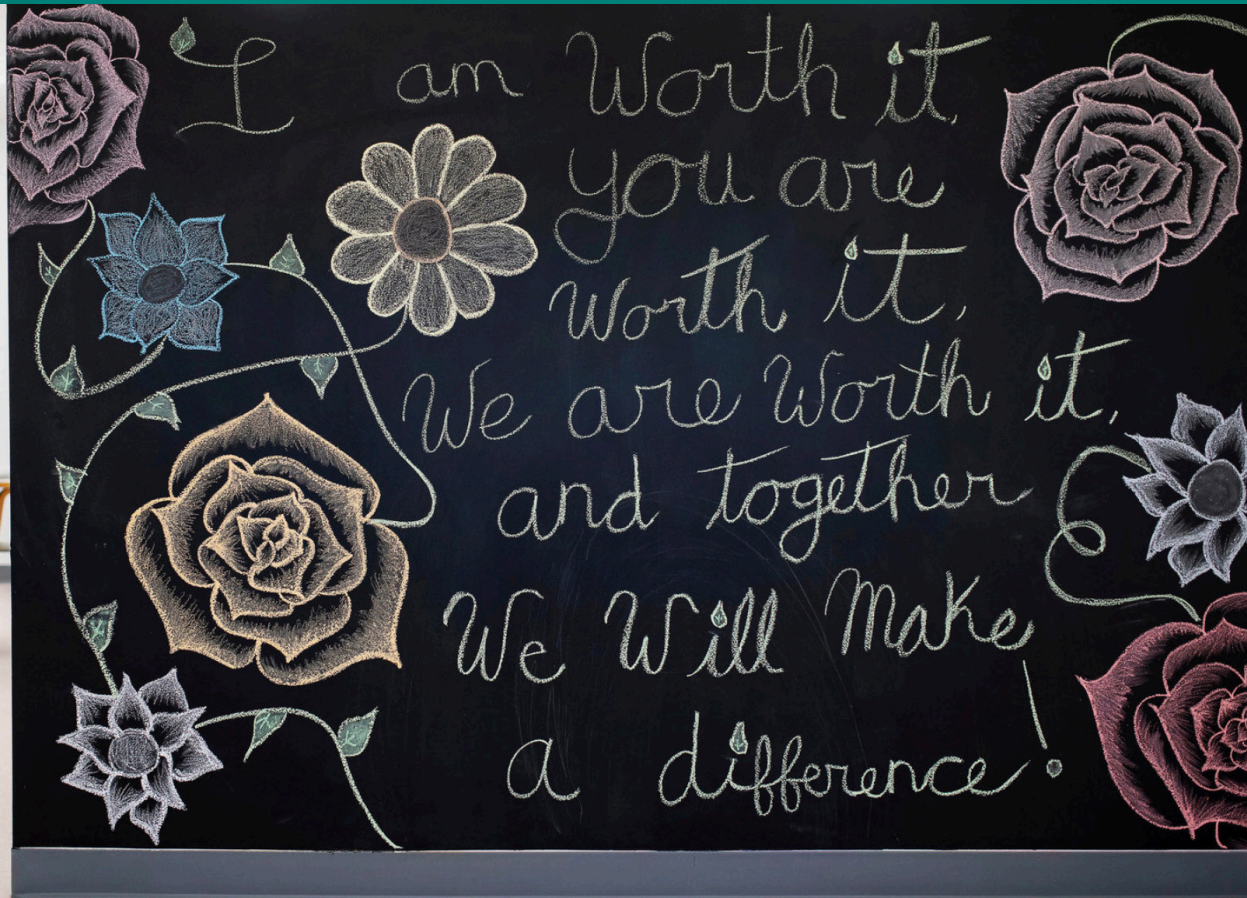 I am Worth it,
you are
Worth it,
We are Worth it,
and together
We Will Make
a difference!